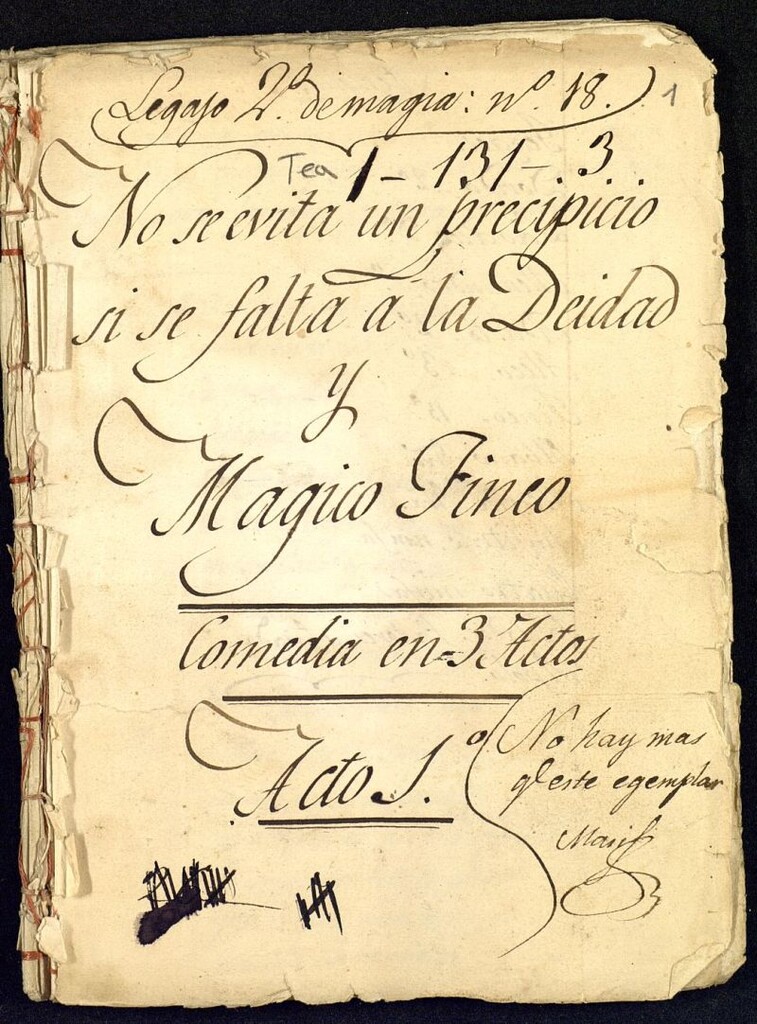 Legajo 2º de magia: nº. 18.
1
Tea 1-131-3
No se evita un precipicio
si se falta a la Deidad
y
Magico Fineo
Comedia en 3 Actos
Acto 1.º
No hay mas
qe este egemplar